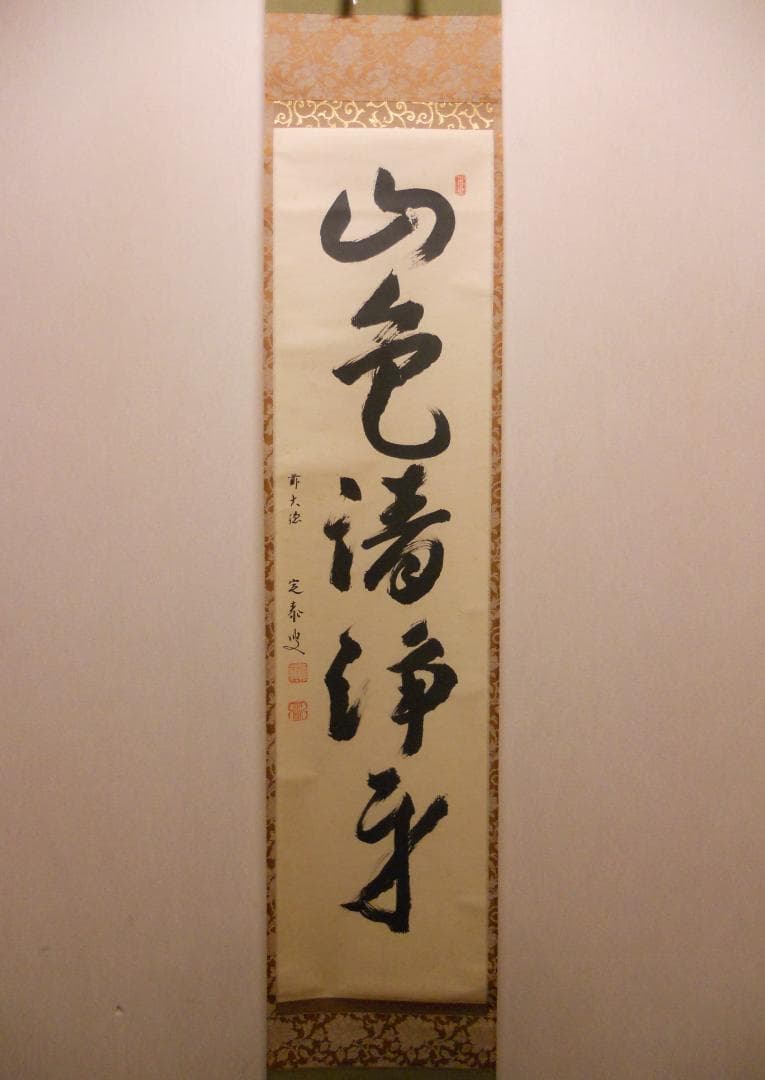 山色清浄身
前大徳 定泰叟